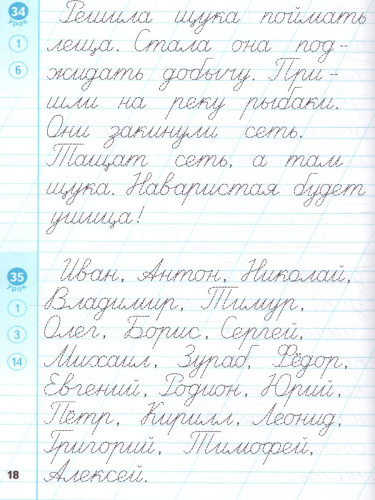 34
урок
Решила щука поймать
1
леща. Стала она под-
6
жидать добычу. При-
шли на реку рыбаки.
Они закинули сеть.
Тащат сеть, а там
щука. Наваристая будет
ушица!
35
урок
Иван, Антон, Николай,
1
Владимир, Тимур,
3
Олег, Борис, Сергей,
14
Михаил, Зураб, Фёдор,
Евгений, Родион, Юрий,
Пётр, Кирилл, Леонид,
Григорий, Тимофей,
18
Алексей.